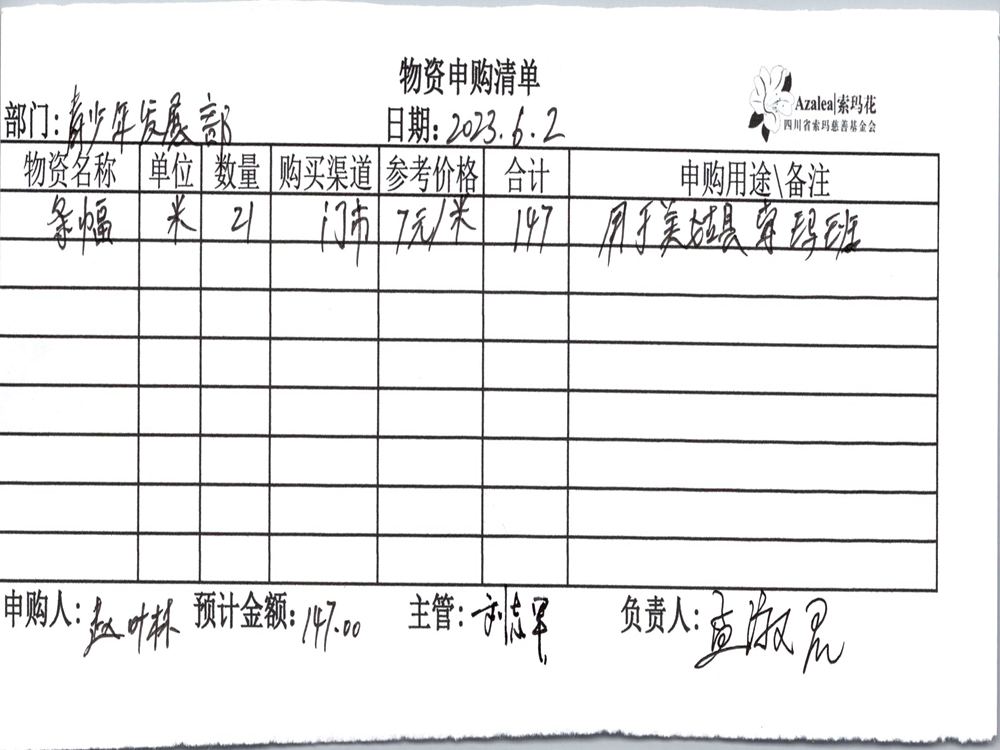 物资申购清单
Azalea|索玛花
四川省索玛慈善基金会
部门：青少年发展部 日期：2023.6.2
物资名称 单位 数量 购买渠道 参考价格 合计 申购用途\备注
条幅 米 21 门市 7元/米 147 用于美姑县索玛班
申购人：赵叶林 预计金额：147.00 主管： 负责人：